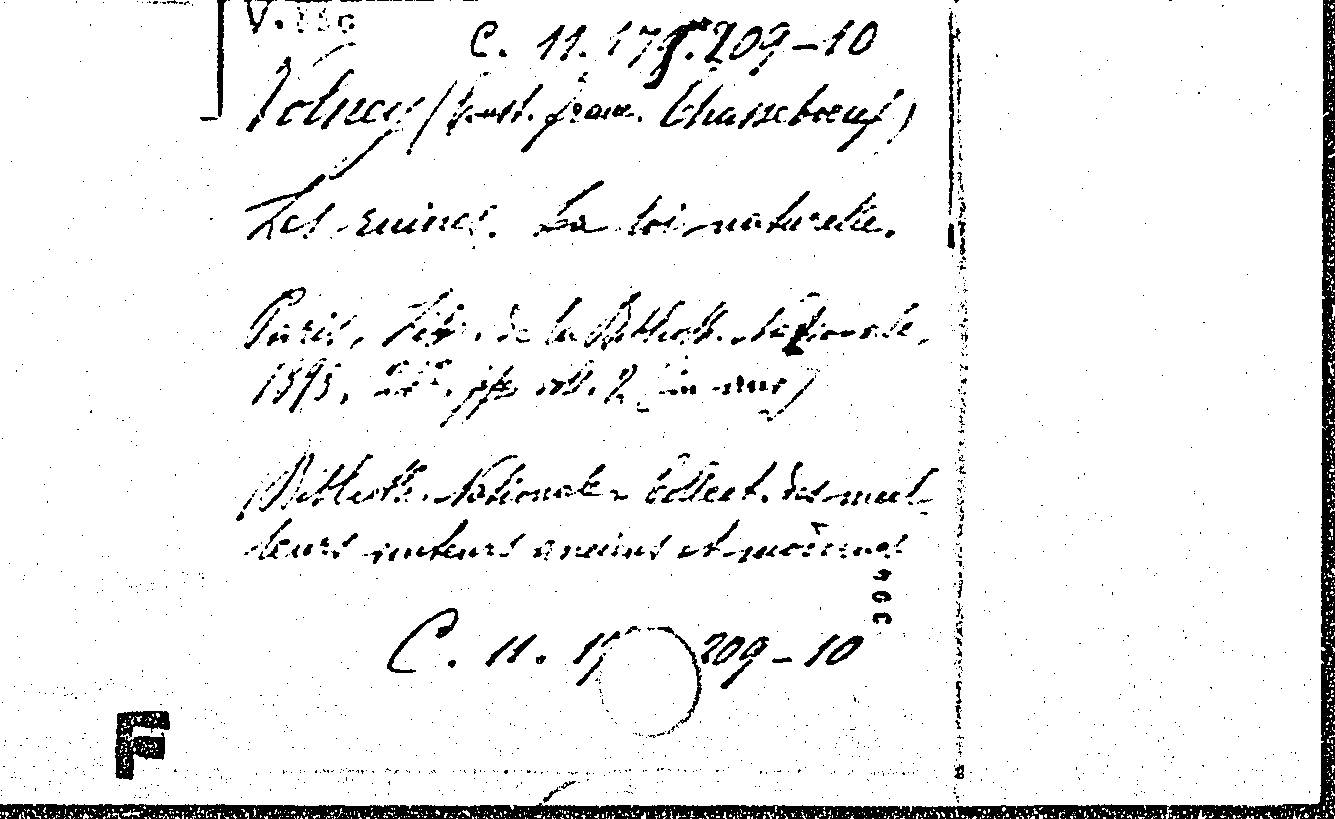 C. 11. 175. 209-10
Volney (Const. franc. Chasseboeuf)
Les ruines. La loi naturelle.
Paris, Lib. de la Biblioth. Nationale,
1895, 2 (in uno)
Biblioth. Nationale. Collect. des meil-
leurs auteurs anciens et modernes
C. 11. 209-10
F